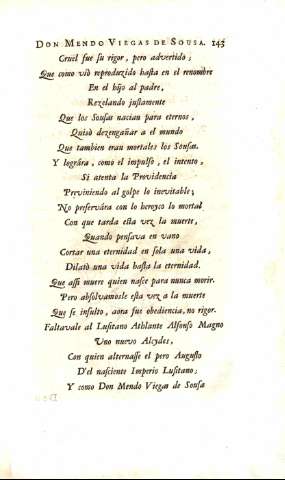 DON MENDO VIEGAS DE SOUSA. 143
Cruel fue su rigor, pero advertido;
Que como viò reproduzido hasta en el renombre
En el hijo al padre,
Rezelando justamente
Que los Sousas nacian para eternos,
Quisò dezengañar a el mundo
Que tambien eran mortales los Sousas.
Y lográra, como el impulso, el intento,
Si atenta la Providencia
Previniendo al golpe lo inevitable;
No preservára con lo heroyco lo mortal
Con que tarda esta vez la muerte,
Quando pensava en vano
Cortar una eternidad en sola una vida,
Dilatò una vida hasta la eternidad.
Que assi muere quien nasce para nunca morir.
Pero absolvamosle esta vez a la muerte
Que se insulto, aora fue obediencia, no rigor.
Faltavale al Lusitano Athlante Alfonso Magno
Uno nuevo Alcydes,
Con quien alternasse el pero Augusto
D'el nasciente Imperio Lusitano;
Y como Don Mendo Viegas de Sousa